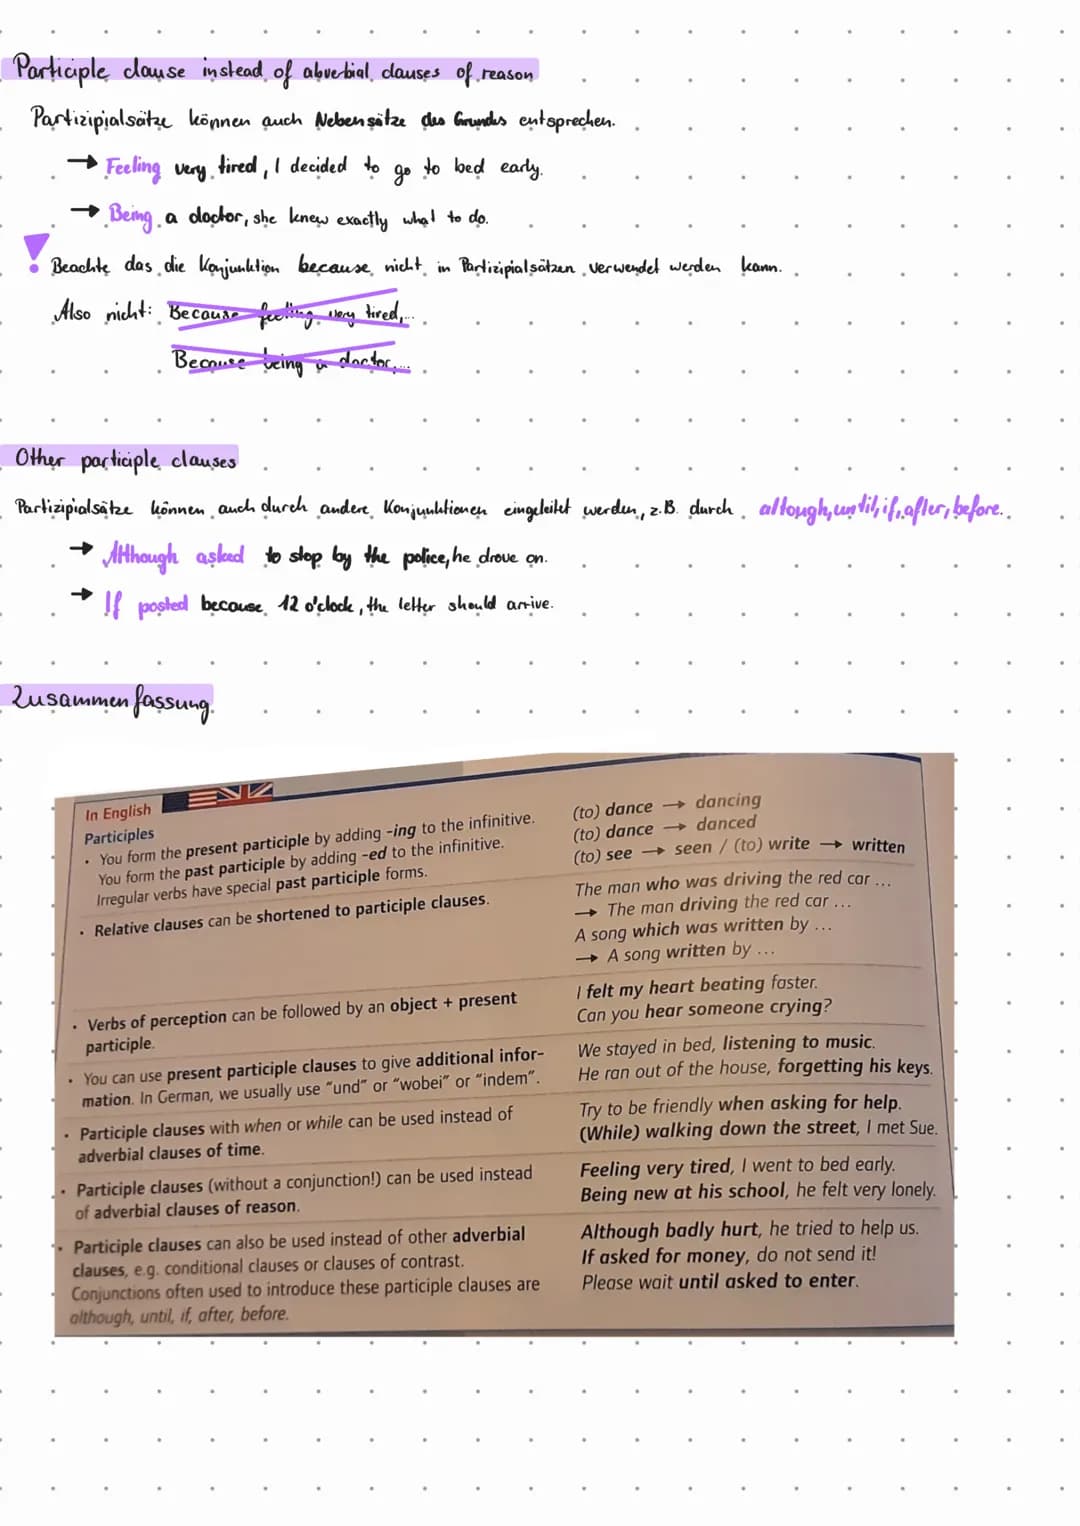 Participle clause instead of abverbial clauses of reason
Partizipialsätze können auch Nebensätze des Grundes entsprechen.
→ Feeling very tired, I decided to go to bed early.
→ Being a doctor, she knew exactly what to do.
! Beachte das die Konjunktion because nicht in Partizipialsätzen verwendet werden kann.
Also nicht: Because feeling very tired,...
Because being a doctor,...
Other participle clauses
Partizipialsätze können auch durch andere Konjunktionen eingeleitet werden, z.B. durch altough, until, if, after, before.
→ Although asked to stop by the police, he drove on.
→ If posted because 12 o'clock, the letter should arrive.
Zusammenfassung
In English
Participles
• You form the present participle by adding -ing to the infinitive.
You form the past participle by adding -ed to the infinitive.
Irregular verbs have special past participle forms.
(to) dance → dancing
(to) dance → danced
(to) see → seen / (to) write → written
• Relative clauses can be shortened to participle clauses.
The man who was driving the red car ...
→ The man driving the red car ...
A song which was written by ...
→ A song written by ...
• Verbs of perception can be followed by an object + present
participle.
I felt my heart beating faster.
Can you hear someone crying?
• You can use present participle clauses to give additional infor-
mation. In German, we usually use "und" or "wobei" or "indem".
We stayed in bed, listening to music.
He ran out of the house, forgetting his keys.
• Participle clauses with when or while can be used instead of
adverbial clauses of time.
Try to be friendly when asking for help.
(While) walking down the street, I met Sue.
• Participle clauses (without a conjunction!) can be used instead
of adverbial clauses of reason.
Feeling very tired, I went to bed early.
Being new at his school, he felt very lonely.
• Participle clauses can also be used instead of other adverbial
clauses, e.g. conditional clauses or clauses of contrast.
Conjunctions often used to introduce these participle clauses are
although, until, if, after, before.
Although badly hurt, he tried to help us.
If asked for money, do not send it!
Please wait until asked to enter.